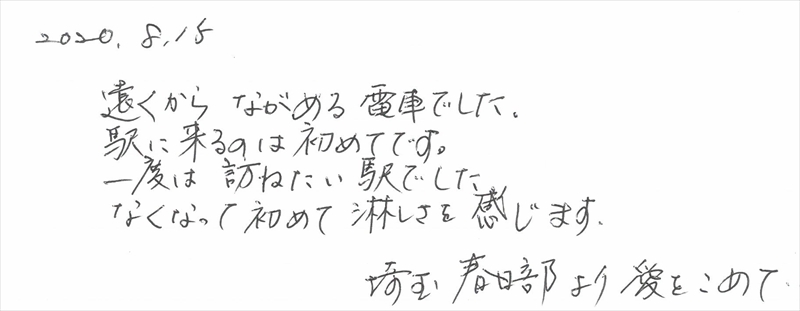 2020. 8. 15
遠くから ながめる 電車でした。
駅に来るのは初めてです。
一度は 訪ねたい 駅でした
なくなって初めて 淋しさを 感じます.
埼玉 春日部より 愛をこめて.